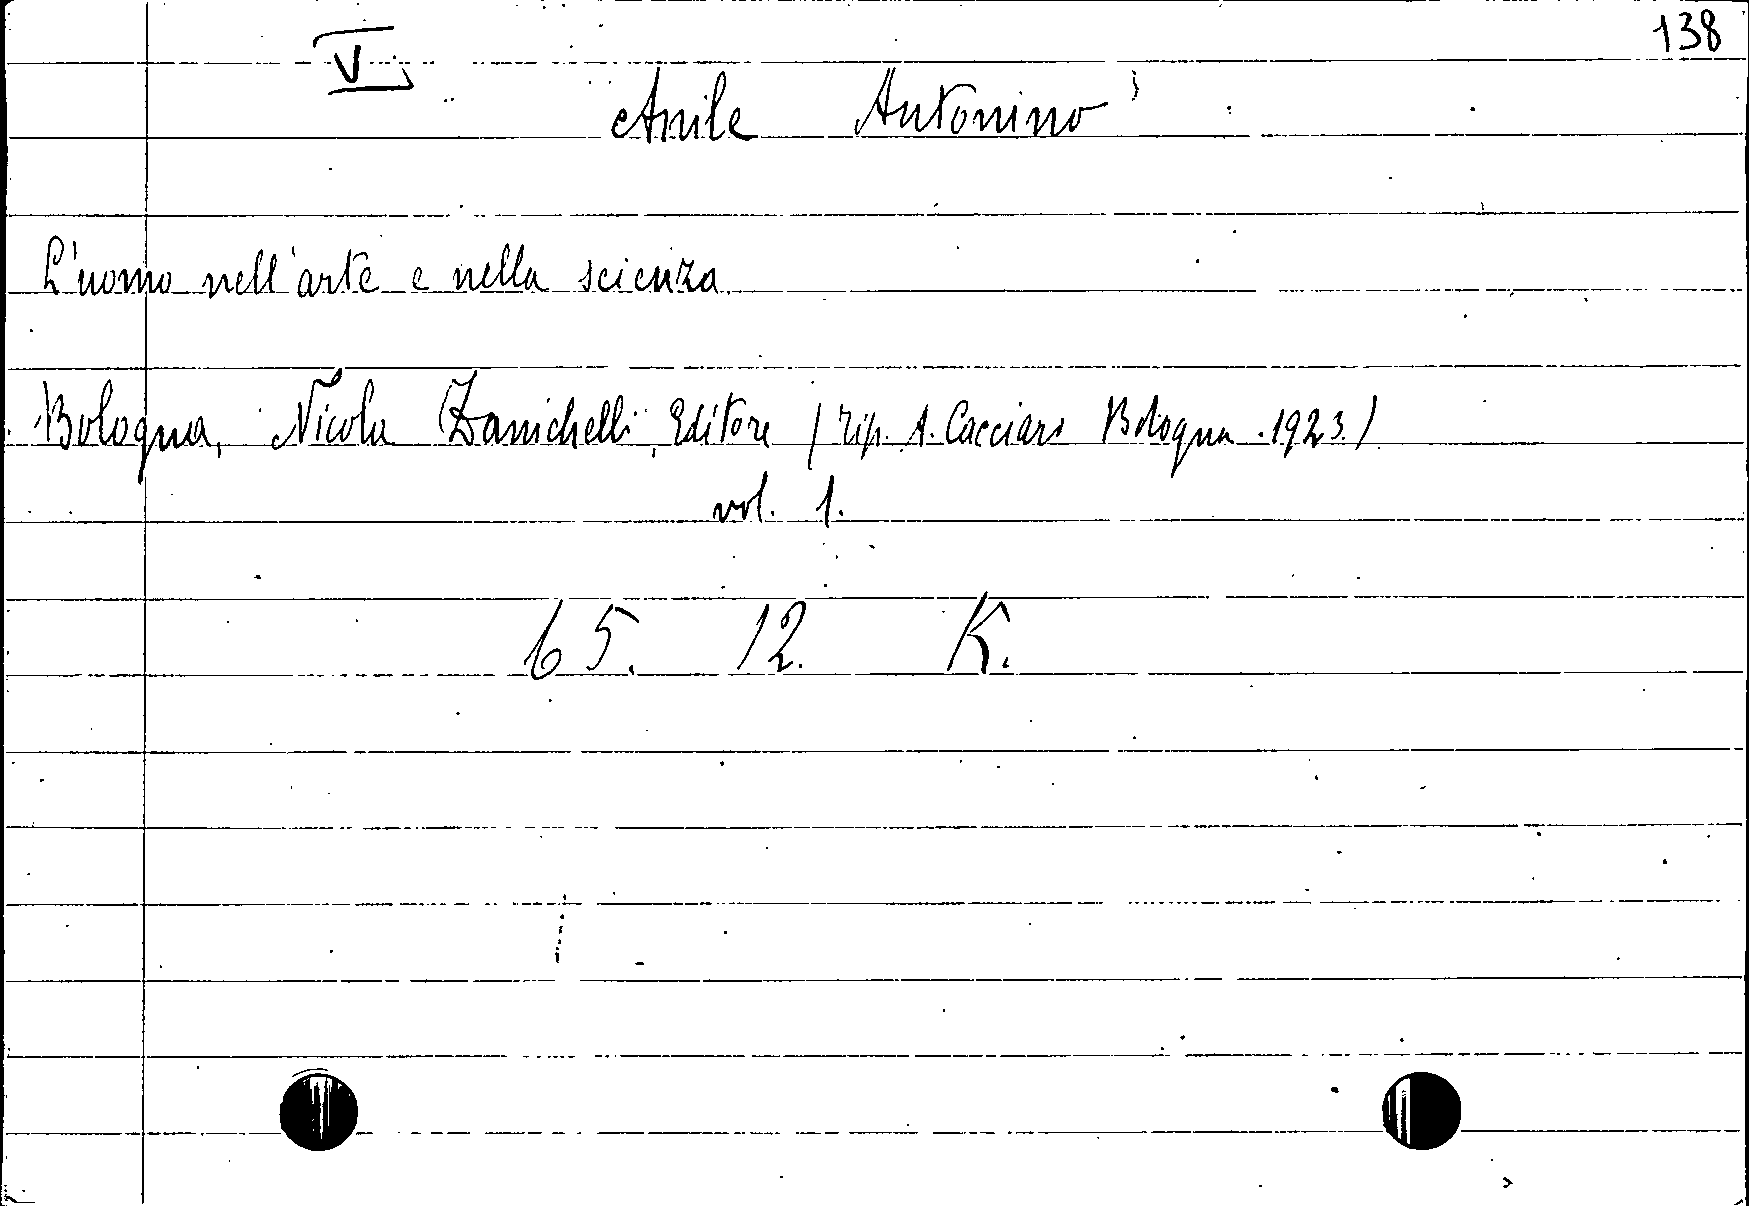 138
V
Anile Antonino
L'uomo nell'arte e nella scienza
Bologna, Nicola Zanichelli, Editore (tip. A. Cacciari Bologna. 1923.)
vol. 1.
65. 12. K.